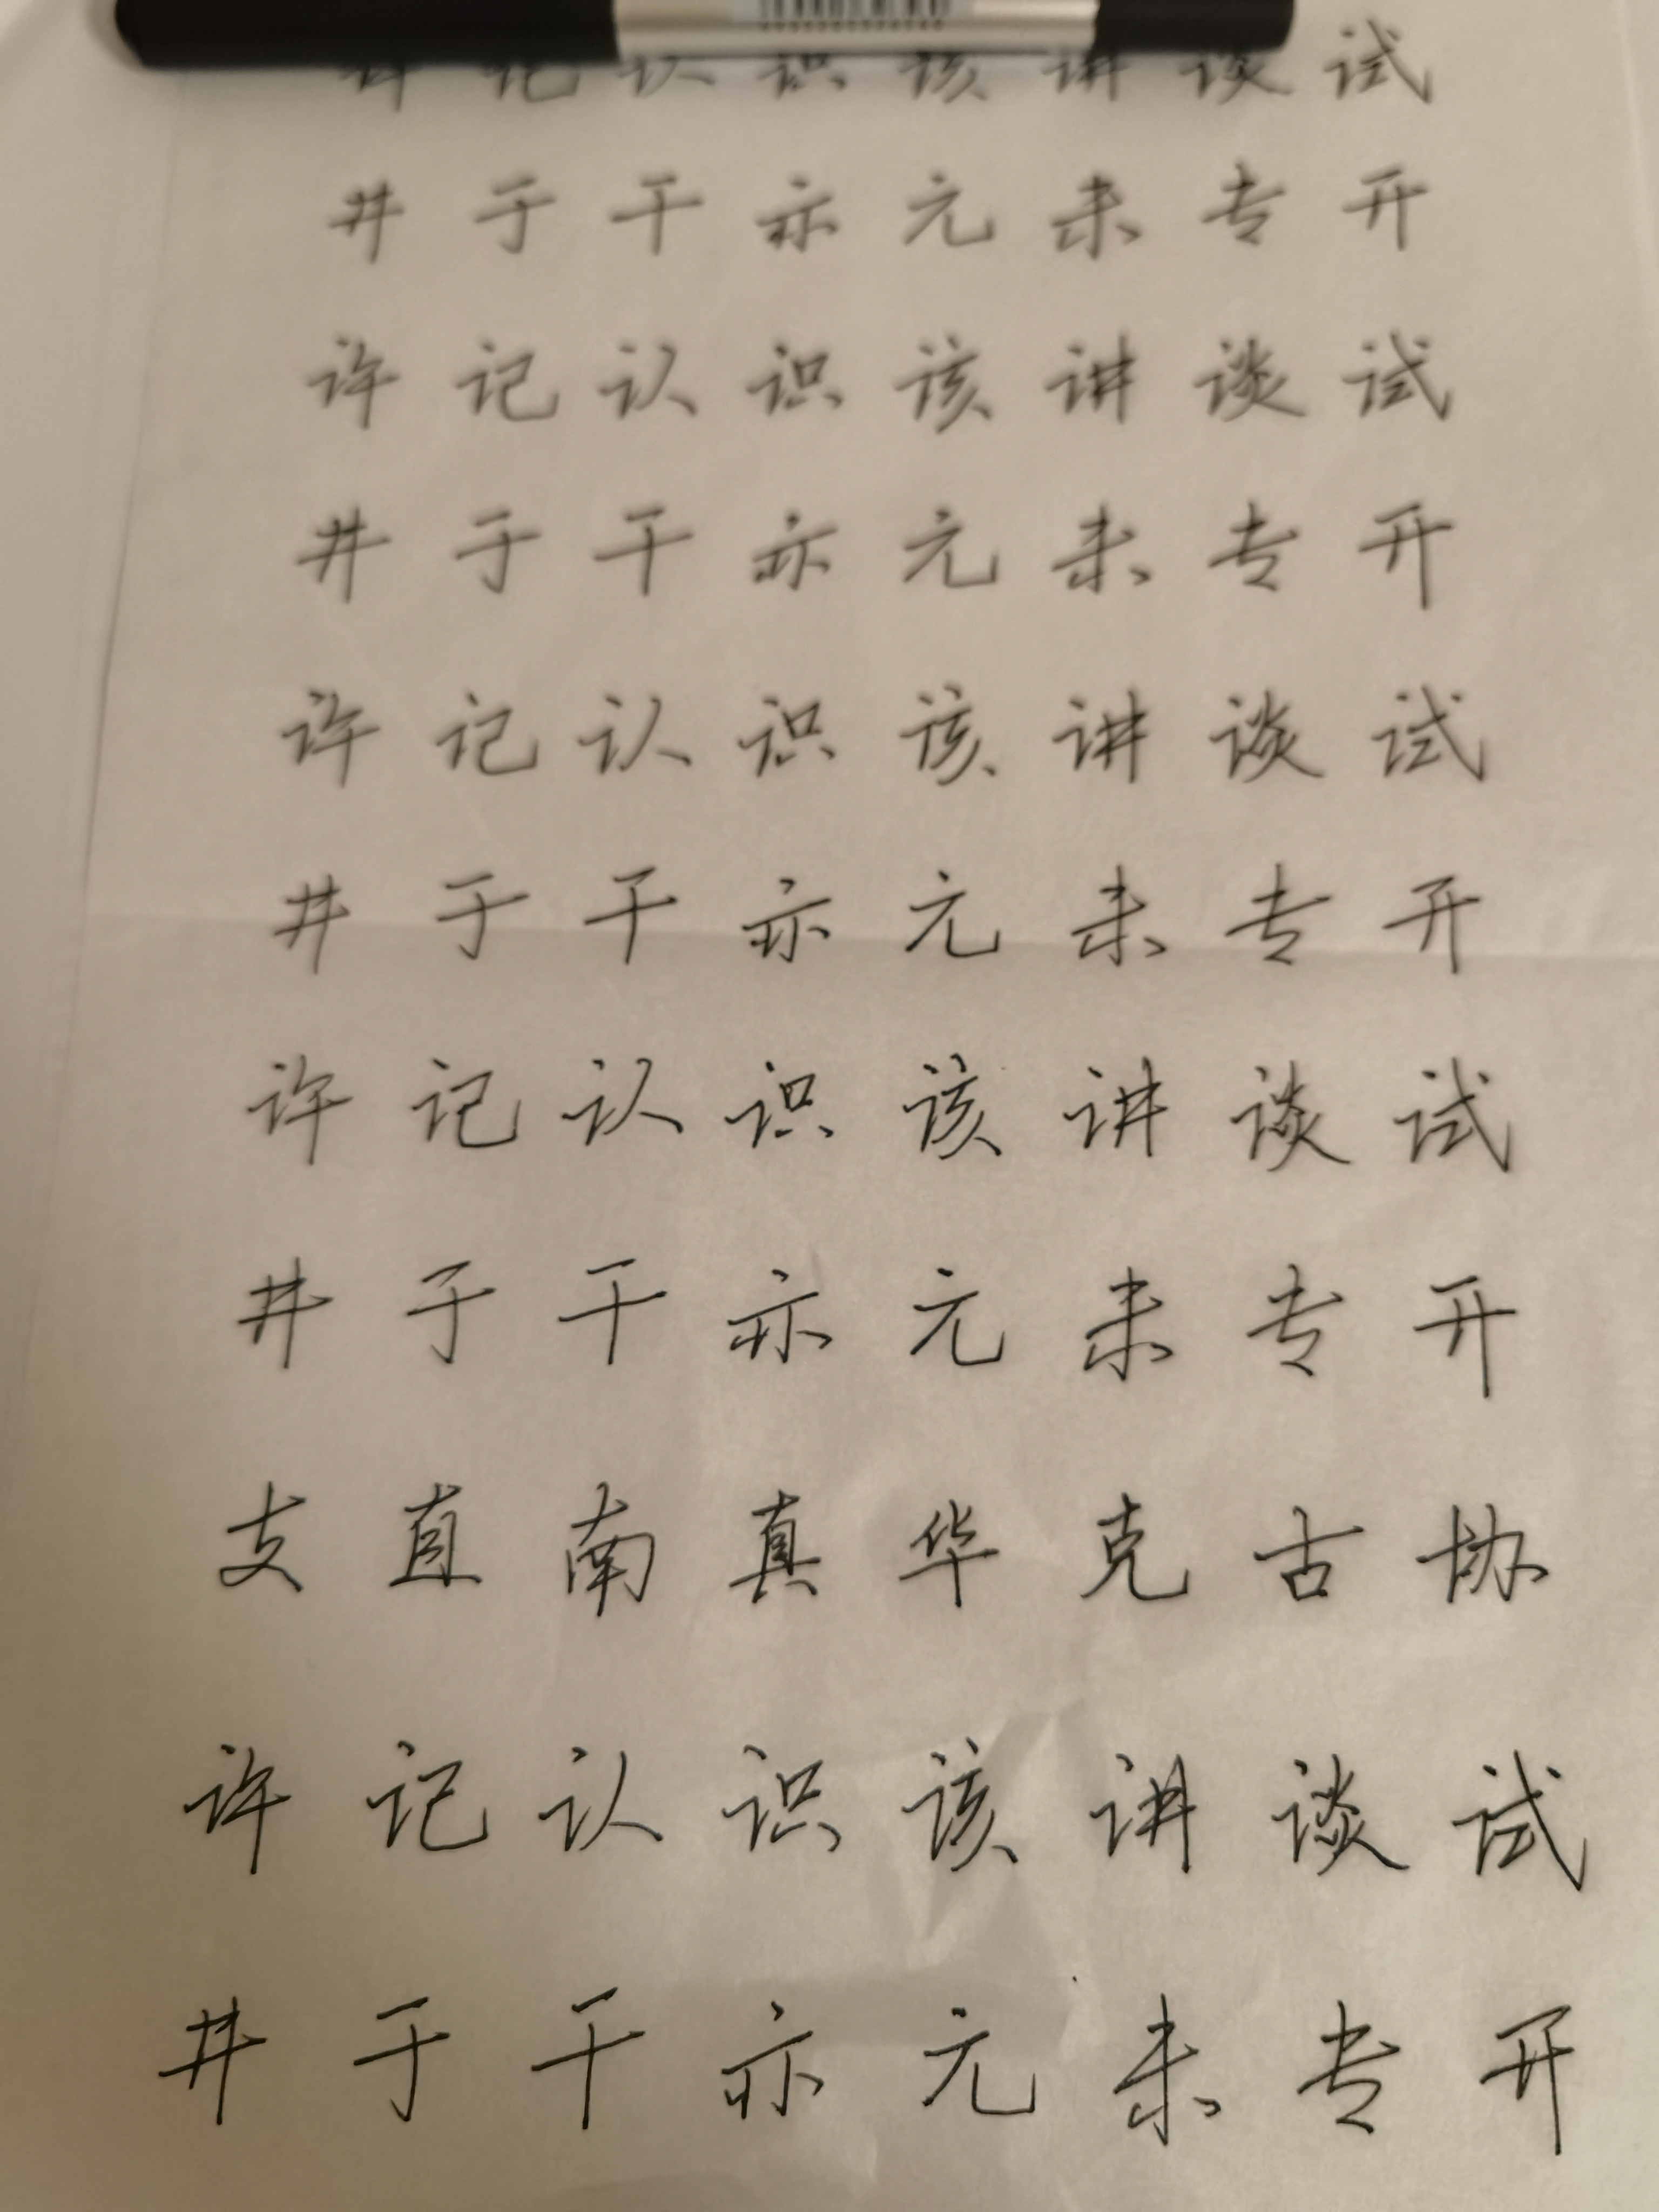 许 记 认 识 该 讲 谈 试
井 于 干 亦 元 未 专 开
许 记 认 识 该 讲 谈 试
井 于 干 亦 元 未 专 开
许 记 认 识 该 讲 谈 试
井 于 干 亦 元 未 专 开
许 记 认 识 该 讲 谈 试
井 于 干 亦 元 未 专 开
支 直 南 真 华 克 古 协
许 记 认 识 该 讲 谈 试
井 于 干 亦 元 未 专 开